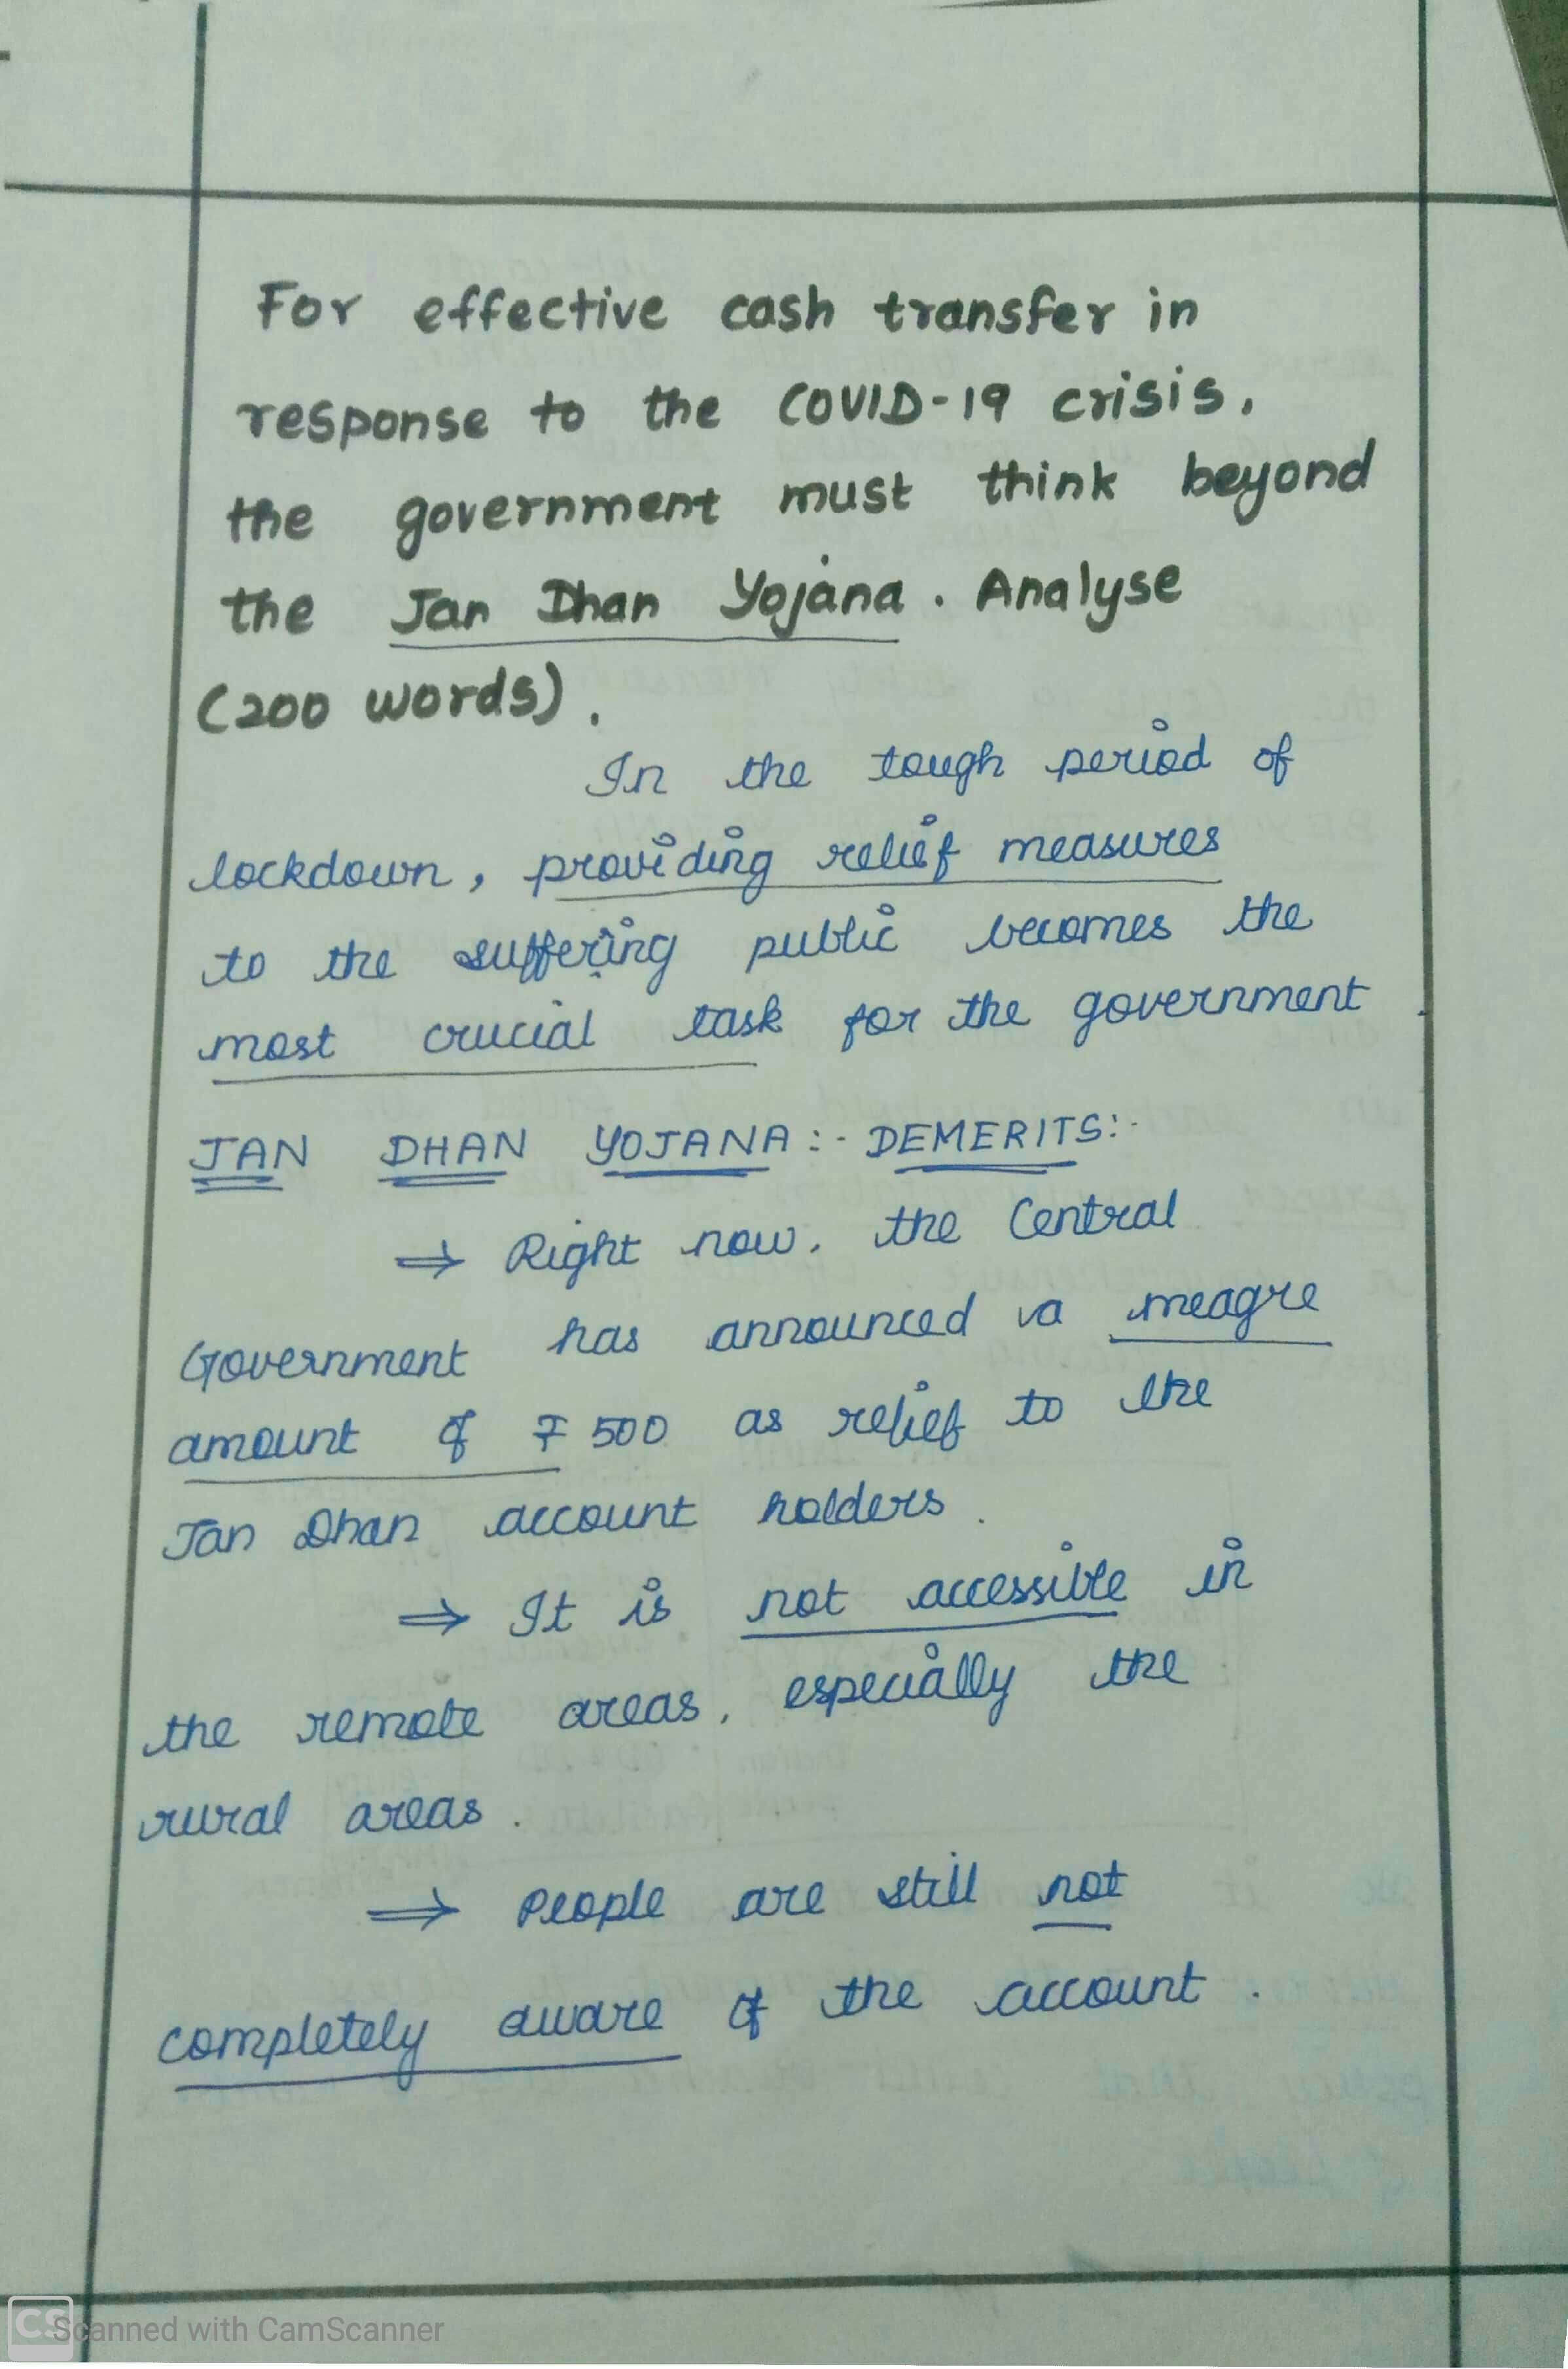 For effective cash transfer in
response to the COVID-19 crisis,
the government must think beyond
the Jan Dhan Yojana. Analyse
(200 words).
In the tough period of
lockdown, providing relief measures
to the suffering public becomes the
most crucial task for the government.
JAN DHAN YOJANA:- DEMERITS:-
⇒ Right now, the Central
Government has announced a meagre
amount of ₹ 500 as relief to the
Jan Dhan account holders.
⇒ It is not accessible in
the remote areas, especially the
rural areas.
⇒ People are still not
completely aware of the account.
CS Scanned with CamScanner